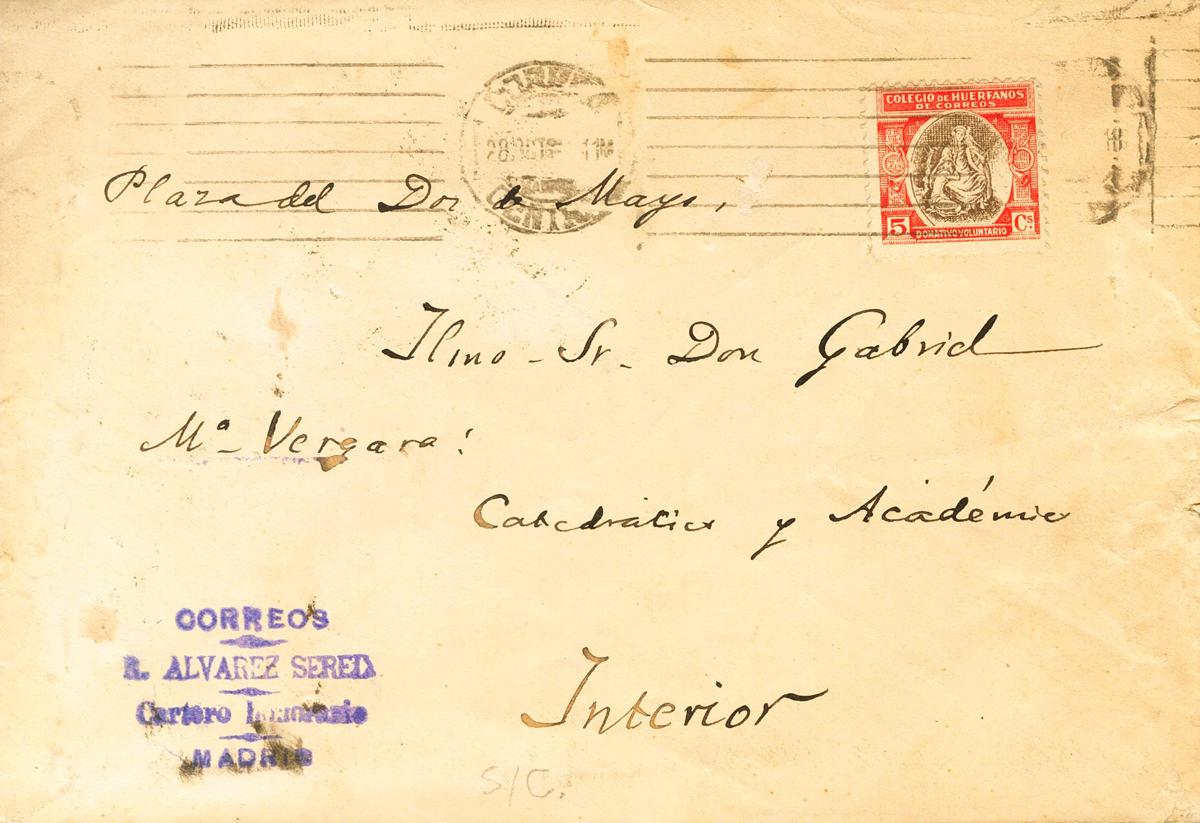 COLEGIO DE HUERFANOS
DE CORREOS
28 OCT 11M
Plaza del Dos de Mayo,
5 DONATIVO VOLUNTARIO Cs.
Ilmo - Sr - Don Gabriel
Mª - Vergara:
Catedrático y Académico
CORREOS
R. ALVAREZ SERED
Cartero Honorario
MADRID
Interior
S/C.